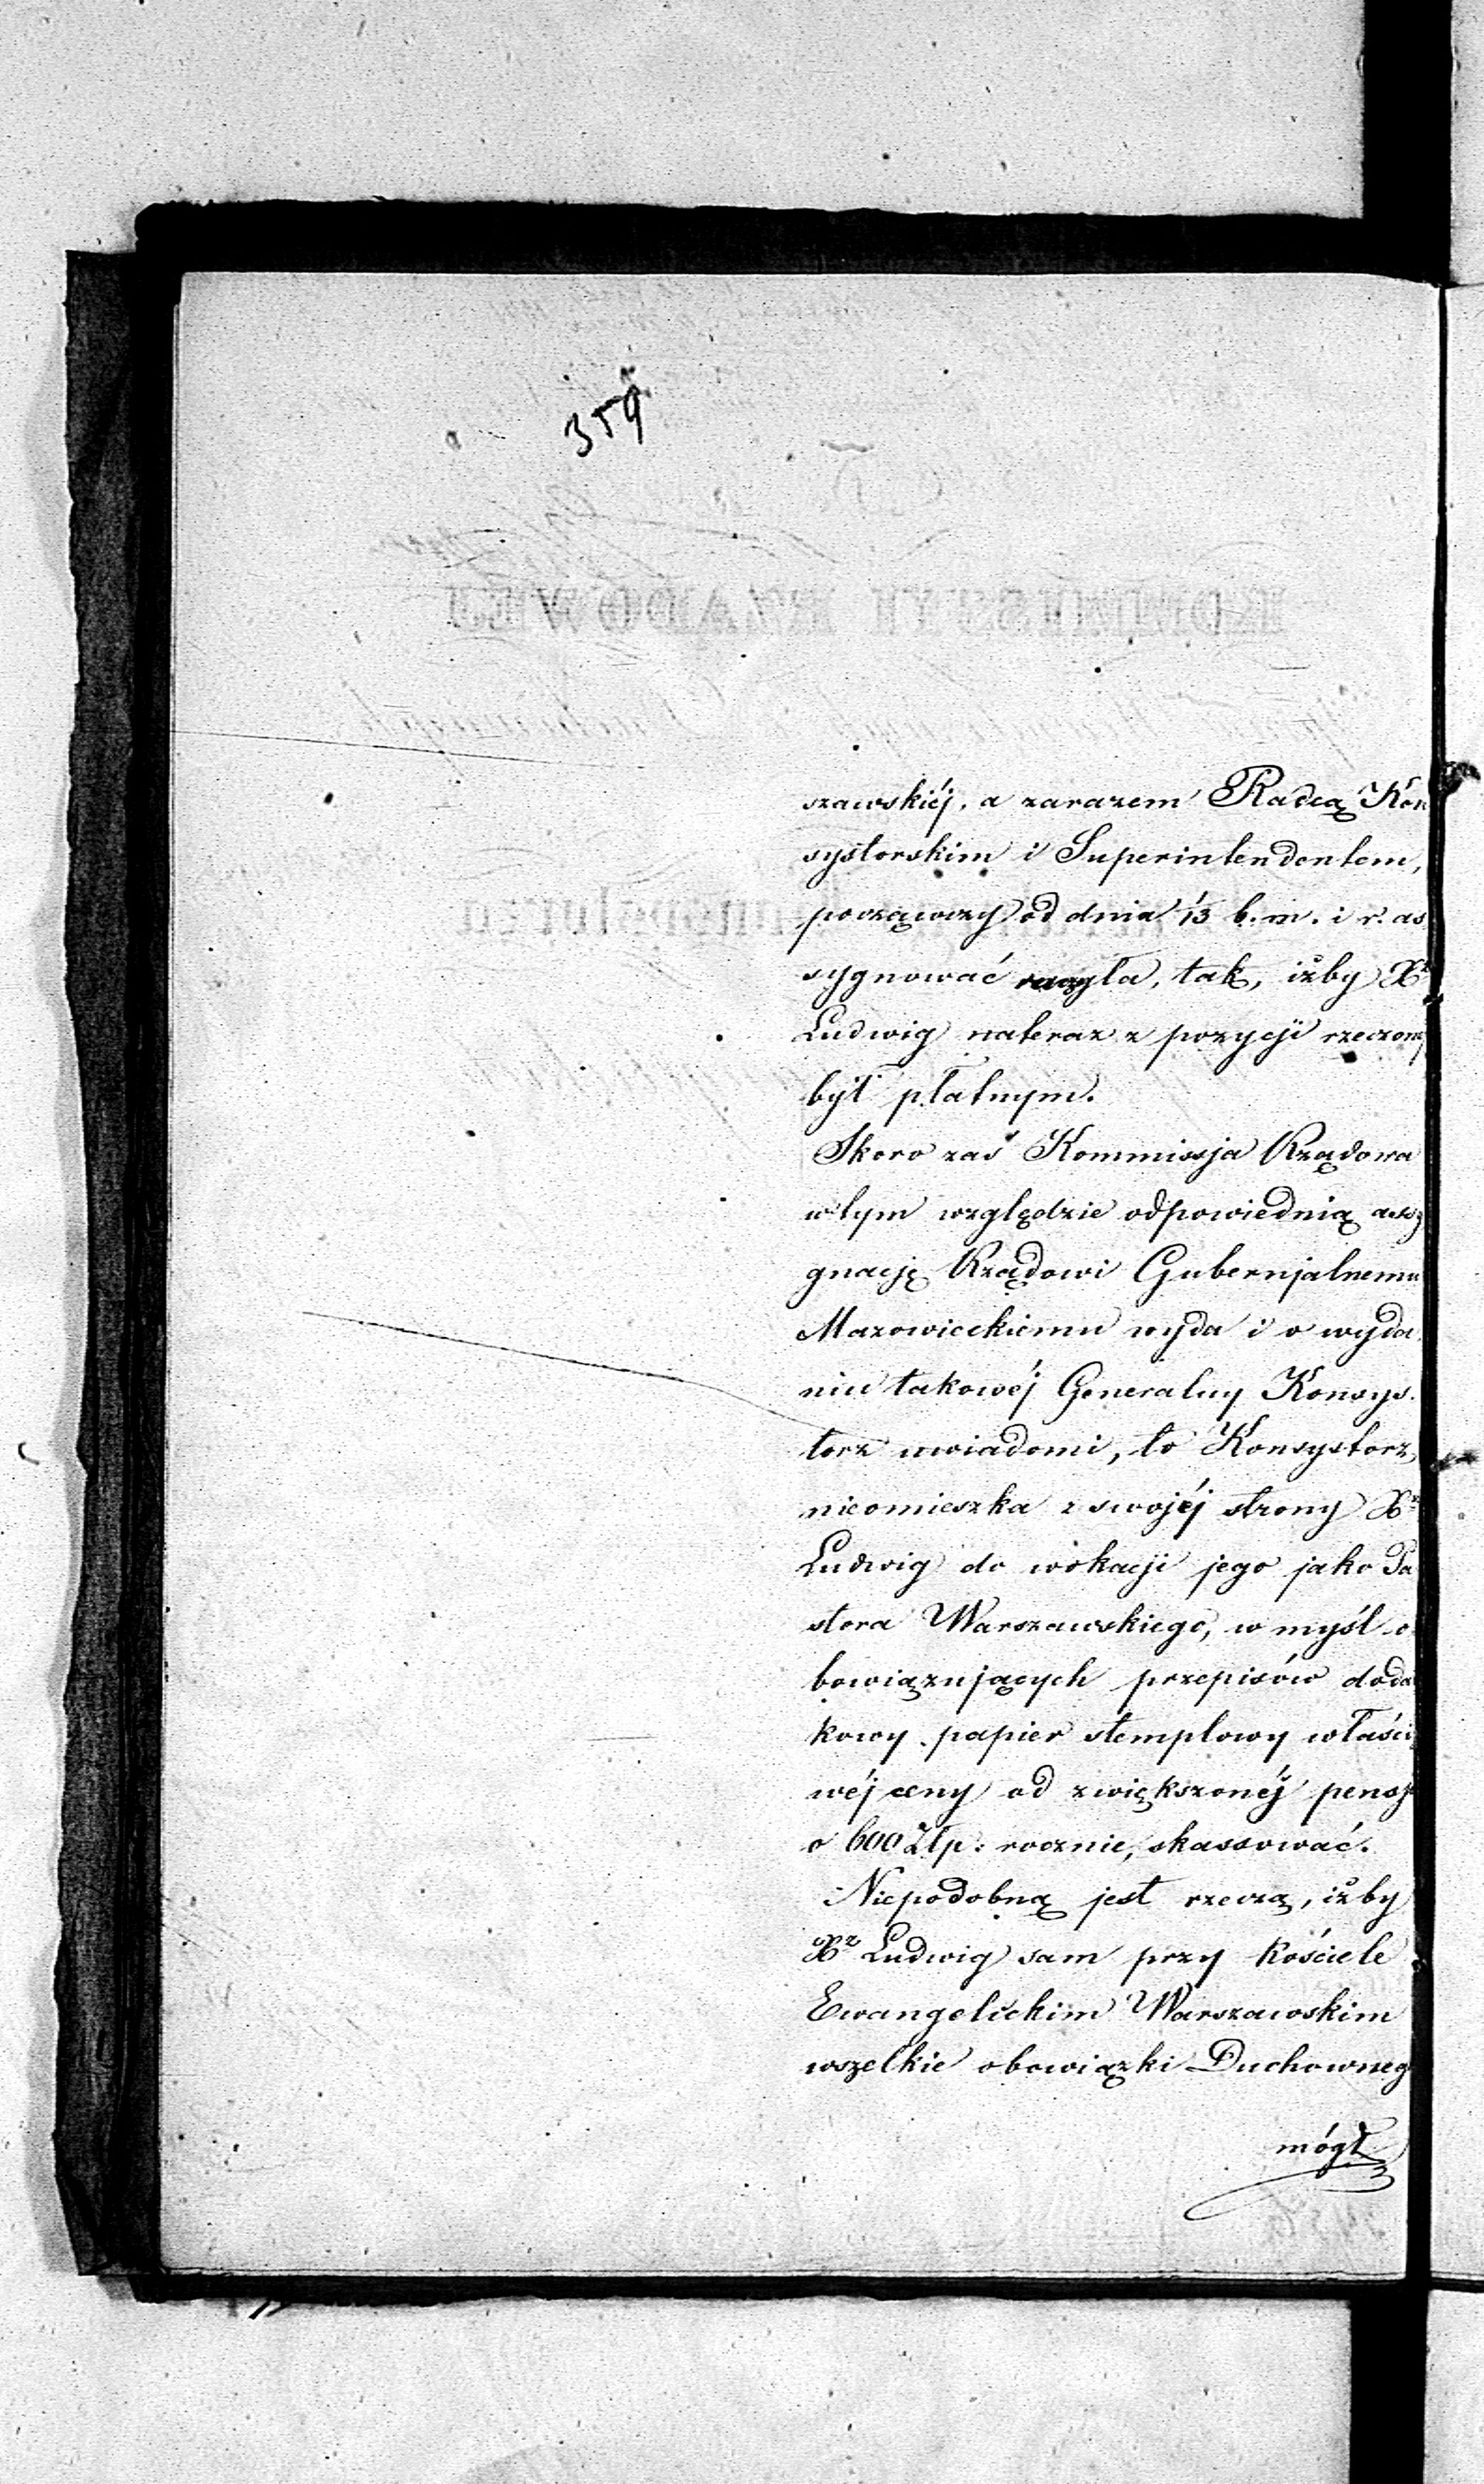 359
szawskiéj, a zarazem Radcą Kon
systorskim i Superintendentem,
począwszy od dnia 13 b.m. i r. as
sygnować raczyła, tak, iżby Xz
Ludwig nateraz z pozycji rzeczonej
był płatnym.
Skoro zaś Kommissja Rządowa
w tym względzie odpowiednią assy
gnację Rządowi Gubernjalnemu
Mazowieckiemu wyda i o wyda
niu takowéj Generalny Konsys
torz uwiadomi, to Konsystorz
nieomieszka z swojéj strony Xz
Ludwig do wokacji jego jako Pa
stora Warszawskiego, w myśl o
bowiązujących przepisów dodat
kowy papier stemplowy właści
wéj ceny od zwiększonéj pensji
o 600 Złp: rocznie, skassować.
Niepodobną jest rzeczą, iżby
Xz Ludwig sam przy Kościele
Ewangelickim Warszawskim
wszelkie obowiązki Duchownego
mógł